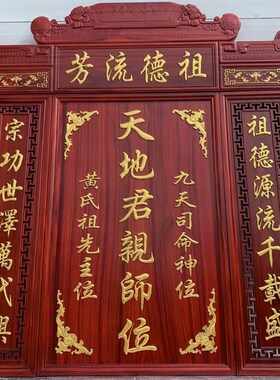 祖德流芳
祖德源流千載盛
九天司命神位
天地君親師位
黄氏祖先主位
宗功世澤萬代興